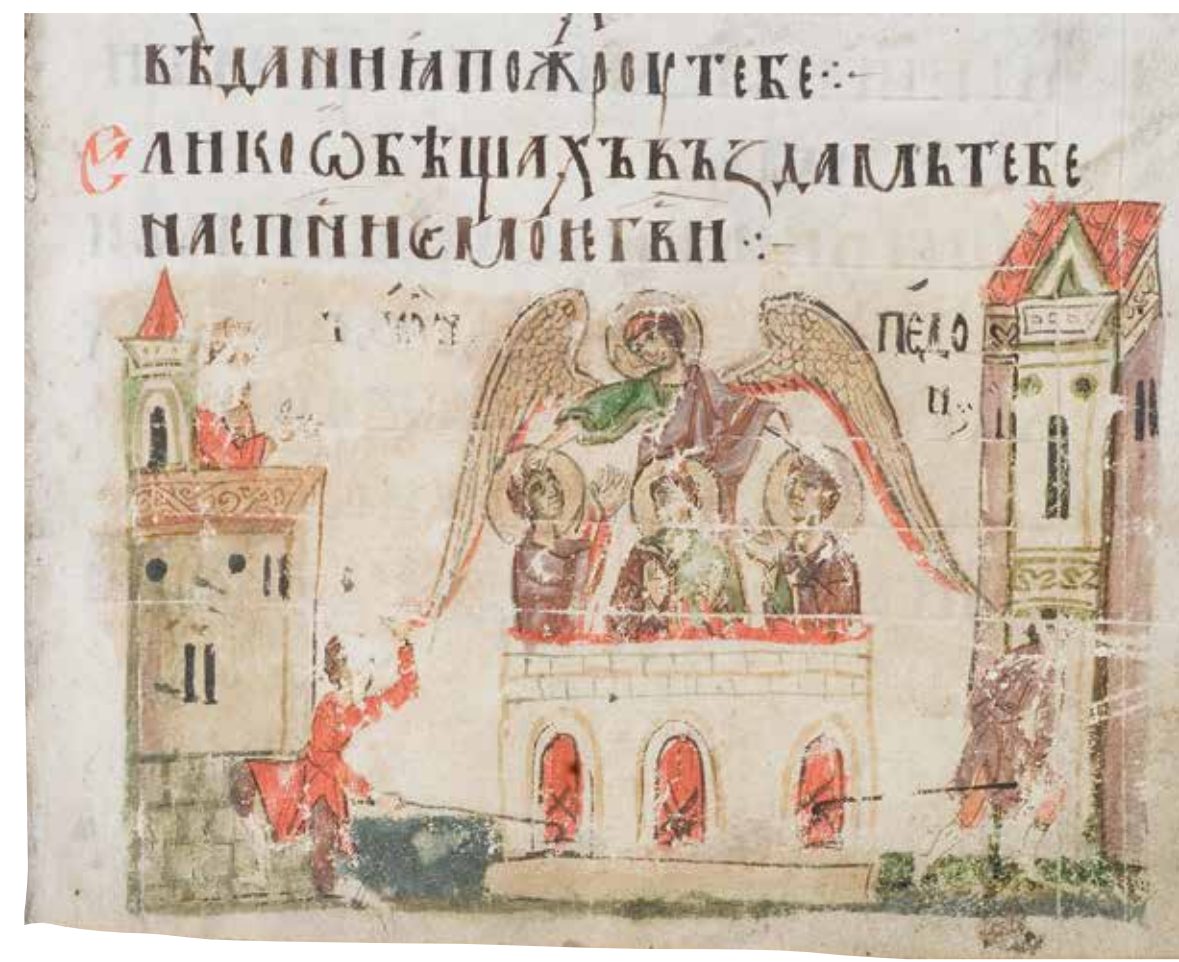 вѣданиꙗпожроутебе჻
еликоѡбѣщахъвъздамьтебе
насп҃ниемоѥг҃ви჻
педо
и